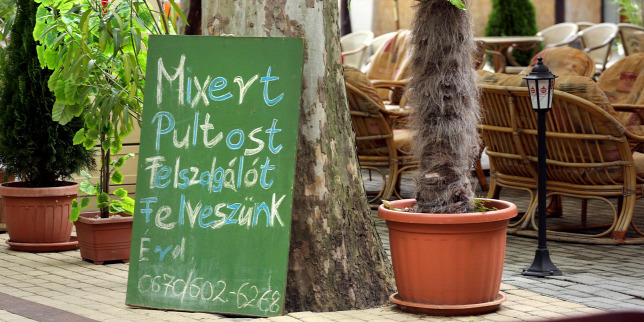 Mixert
Pultost
Felszolgálót
Felveszünk
Érd
0670/602-6268